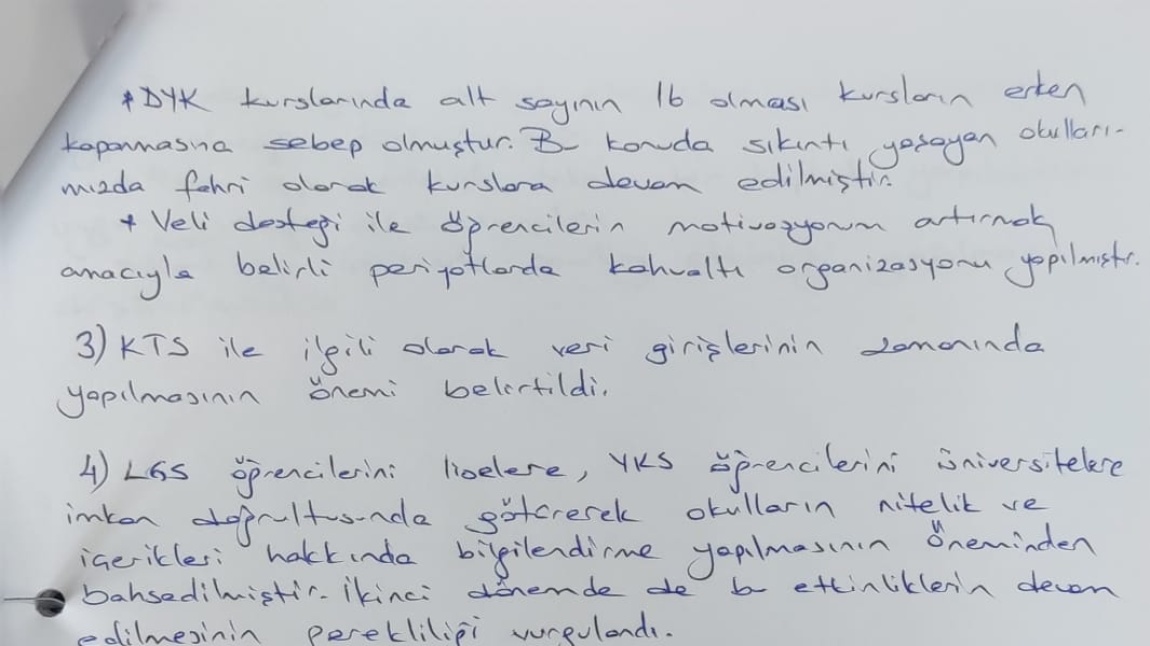 * DYK kurslarında alt sayının 16 olması kursların erken
kapanmasına sebep olmuştur. Bu konuda sıkıntı yaşayan okulları-
mızda fahri olarak kurslara devam edilmiştir.
* Veli desteği ile öğrencilerin motivasyonunu artırmak
amacıyla belirli periyotlarda kahvaltı organizasyonu yapılmıştır.
3) KTS ile ilgili olarak veri girişlerinin zamanında
yapılmasının önemi belirtildi.
4) LGS öğrencilerini liselere, YKS öğrencilerini üniversitelere
imkan doğrultusunda götürerek okulların nitelik ve
içerikleri hakkında bilgilendirme yapılmasının öneminden
bahsedilmiştir. İkinci dönemde de bu etkinliklerin devam
edilmesinin gerekliliği vurgulandı.